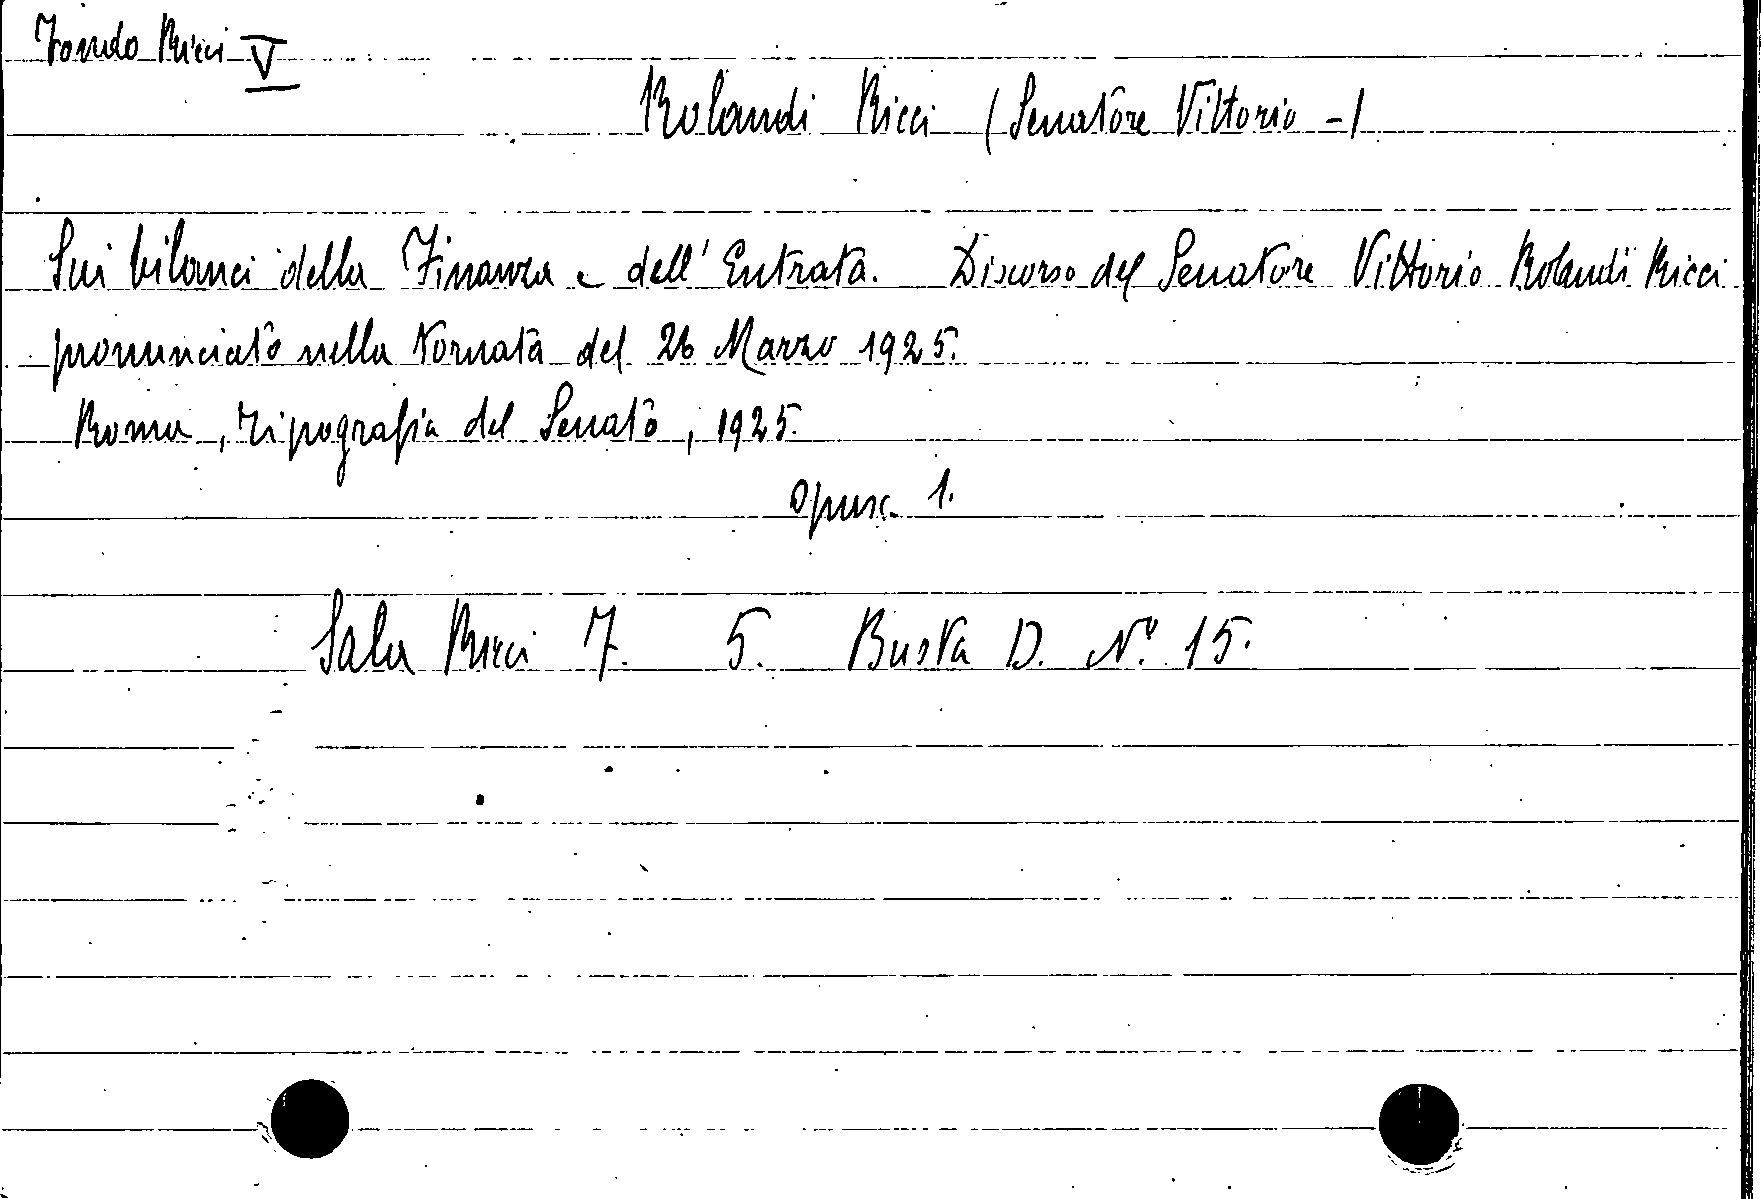 Fondo Ricci V
Rolandi Ricci (Senatore Vittorio -)
Sui bilanci della Finanza e dell'Entrata. Discorso del Senatore Vittorio Rolandi Ricci
pronunciato nella tornata del 26 Marzo 1925.
Roma, tipografia del Senato, 1925.
Opusc. 1.
Sala Ricci 7. 5. Busta D. N.º 15.